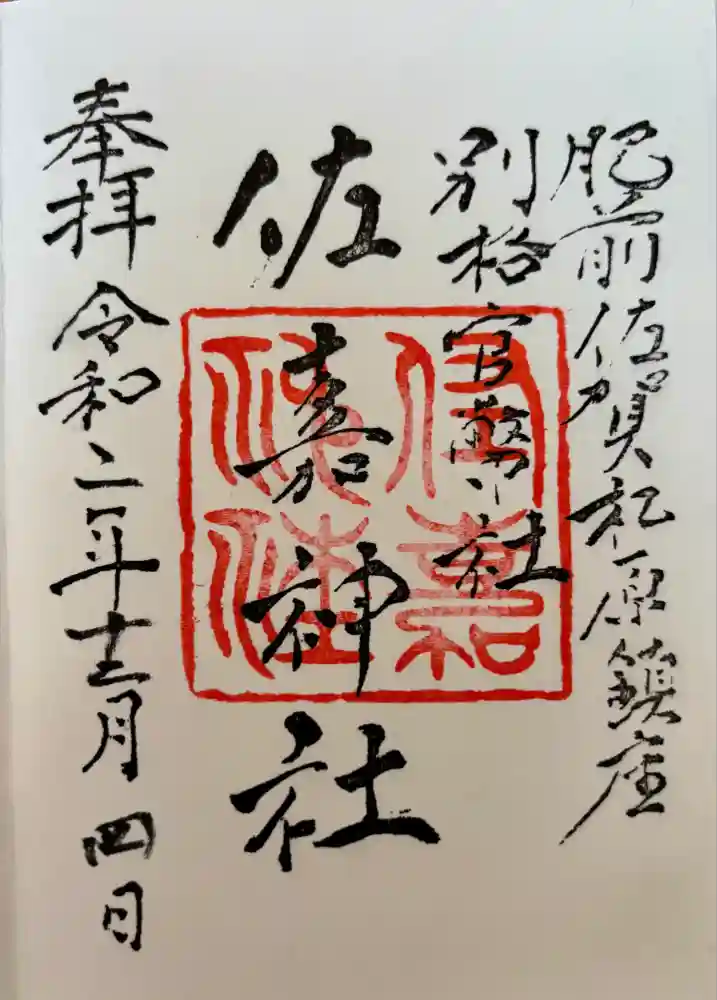 肥前佐賀松原鎮座
別格官幣社
佐嘉神社
奉拝 令和二年十二月四日
佐嘉神社